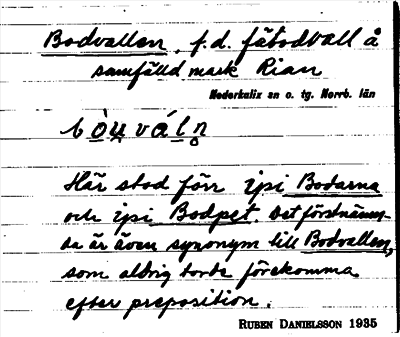 Bodvallen, f.d. fäbodvall å
samfälld mark Rian
Nederkalix sn o. tg. Norrb. län
bòu̯váln̥
Här stod förr ipi Bodarna
och ipi Bodpet. Det förstnämn-
da är även synonym till Bodvallen,
som aldrig torde förekomma
efter preposition.
RUBEN DANIELSSON 1935